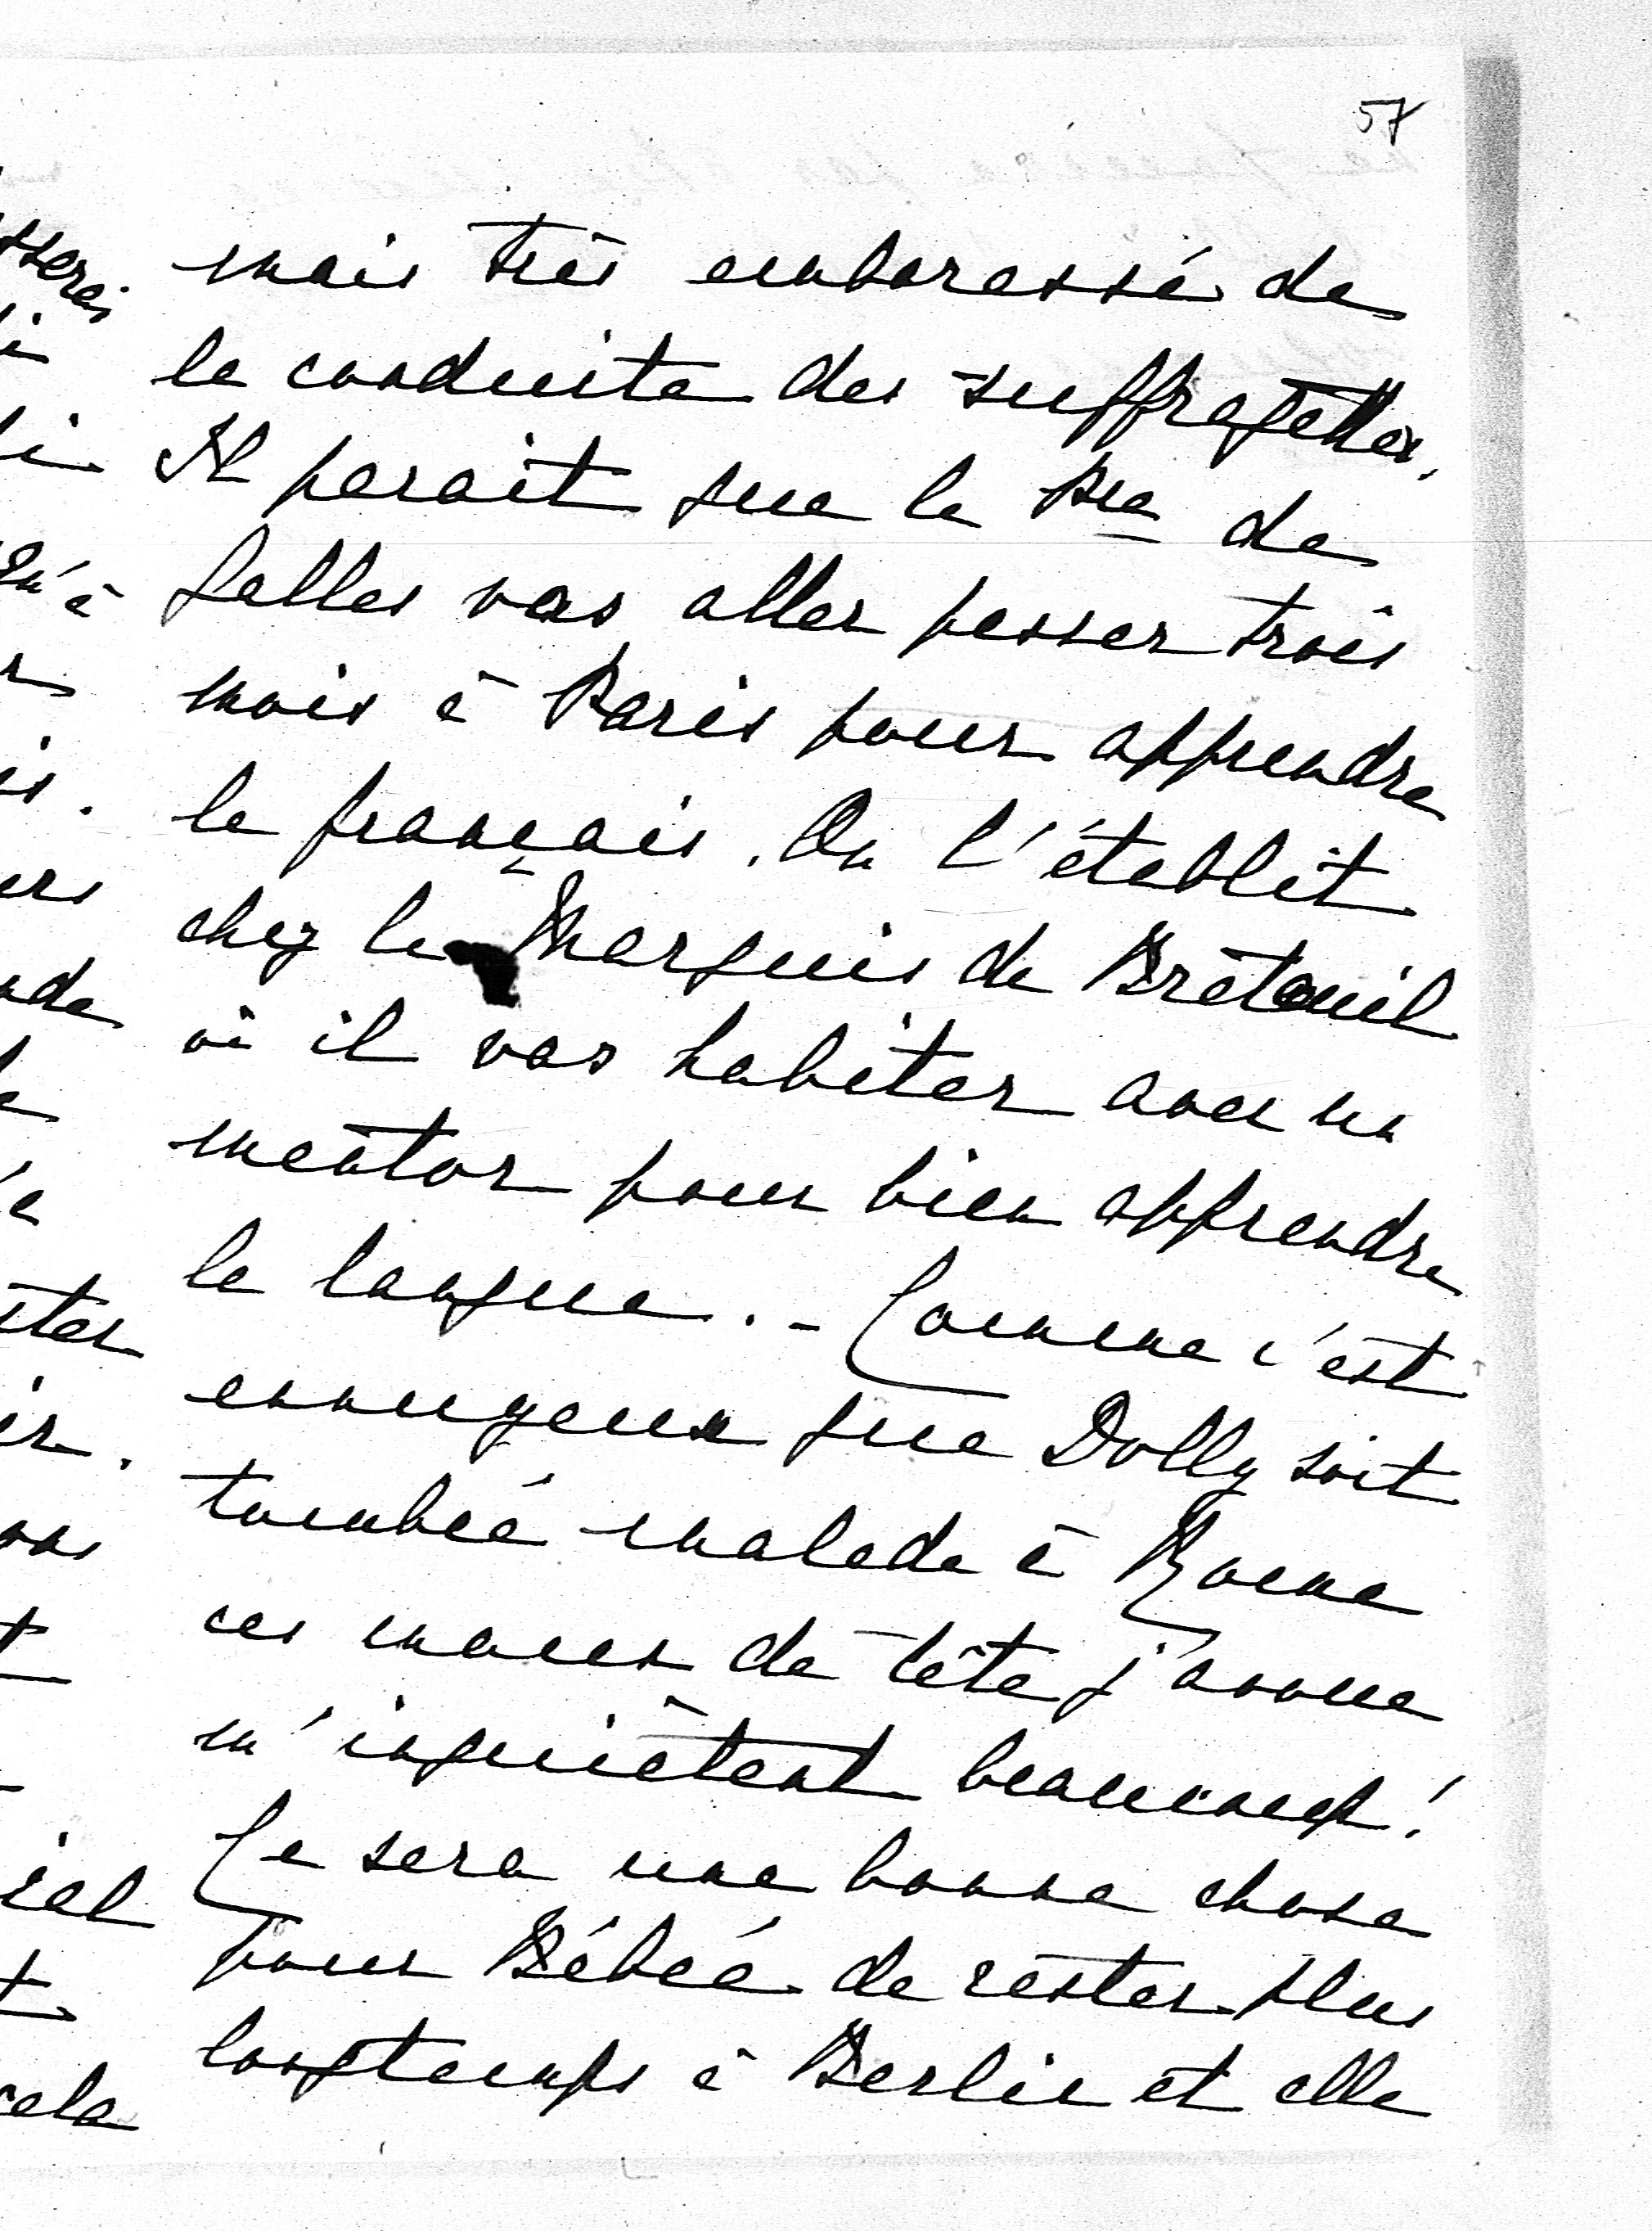 57
mais très embarassé de
la conduite des suffragettes.
Il parait que le Pce de
Galles vas aller passer trois
mois à Paris pour apprendre
le français. On l'établit
chez le Marquis de Breteuil
où il vas habiter avec un
mentor pour bien apprendre
la langue. - Comme c'est
ennuyeux que Dolly soit
tombée malade à Rome
ces maux de tête j'avoue
m'inquiètent beaucoup!
Ce sera une bonne chose
pour Bébée de rester plus
longtemps à Berlin et elle